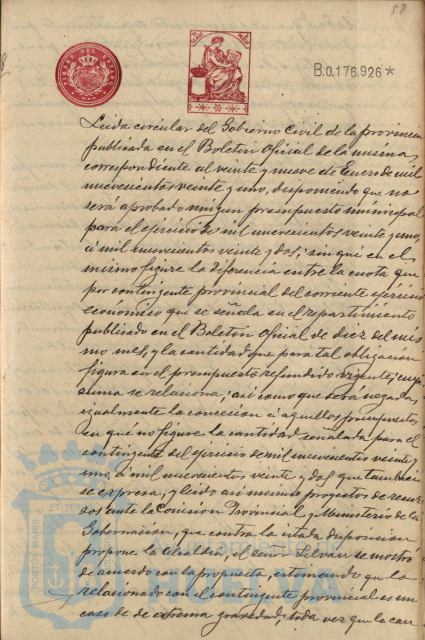 58
B.0.176.926*
Leida circular del Gobierno Civil de la provincia
publicada en el Boletin Oficial de la misma,
correspondiente al veinte y nueve de Enero de mil
novecientos veinte y uno, disponiendo que no
será aprobado ningun presupuesto municipal
para el ejercicio de mil novecientos veinte y uno,
á mil novecientos veinte y dos, sin que en el
mismo figure la diferencia entre la cuota que
por contingente provincial del corriente ejercicio
económico que se señala en el repartimiento
publicado en el Boletin Oficial de diez del mis
mo mes, y la cantidad que para tal obligacion
figura en el presupuesto refundido vigente, cuya
suma se relaciona, asi como que será negada,
igualmente la concesion á aquellos presupuestos
en que no figure la cantidad señalada para el
contingente del ejercicio de mil novecientos veinte y
uno, á mil novecientos veinte y dos que tambien
se expresa, y leido asi mismo proyectos de recur
sos ante la Comision Provincial y Ministerio de la
Gobernacion, que contra la citada disposicion
propone la Alcaldia, el señor Selvan se mostró
de acuerdo con la propuesta, estimando que lo
relacionado con el contingente provincial es un
caso de de extrema gravedad, toda vez que la can